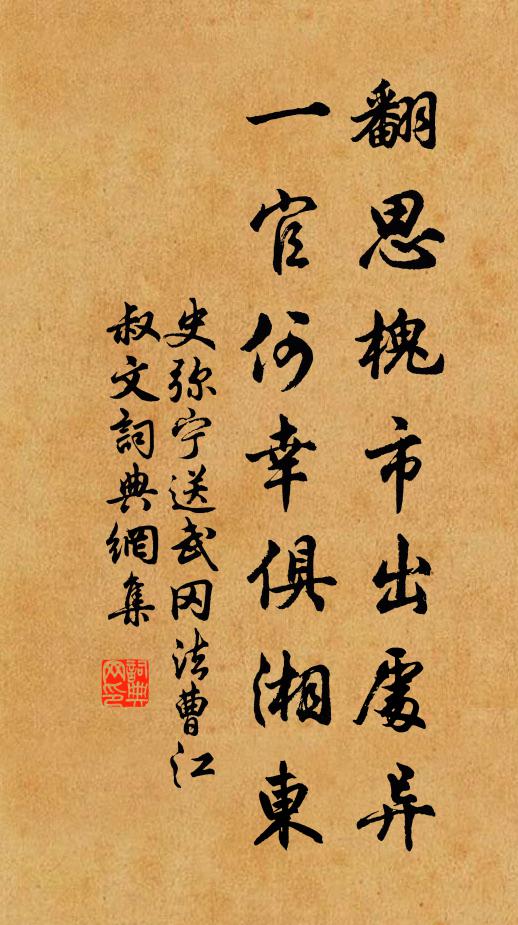 翻思槐市出處异
一官何幸俱湘東
史弥宁送武冈法曹江
叔文詞典網集
詞典网印